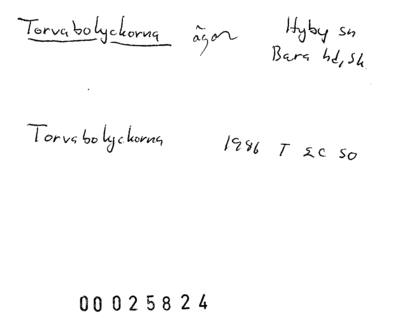 Torvabolyckorna ägor Hyby sn
Bara hd, Sk
Torvabolyckorna 1986 T ΣC SO
00025824